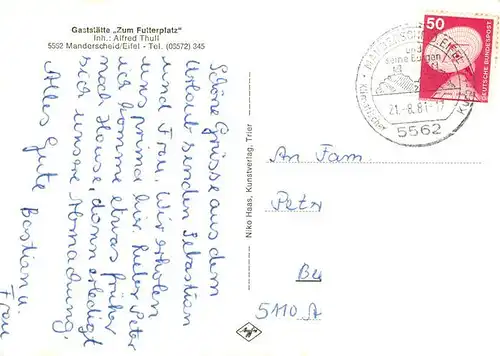 Gaststätte „Zum Futterplatz"
Inh.: Alfred Thull
5562 Manderscheid/Eifel - Tel. (03572) 345
Schöne Grüsse aus dem
Urlaub senden Sebastian
und Frau. Wir erholen
uns prima hier. Lieber Peter
ich komme etwas früher
nach Hause, dann erledigt
sich unsere Abmachung,
Alles Gute Bastian u.
Frau
Niko Haas, Kunstverlag, Trier
50
DEUTSCHE BUNDESPOST
MANDERSCHEID, EIFEL
und
seine Burgen
21.-8.81-17
5562
An Fam.
Petr
5110 A
Agfa